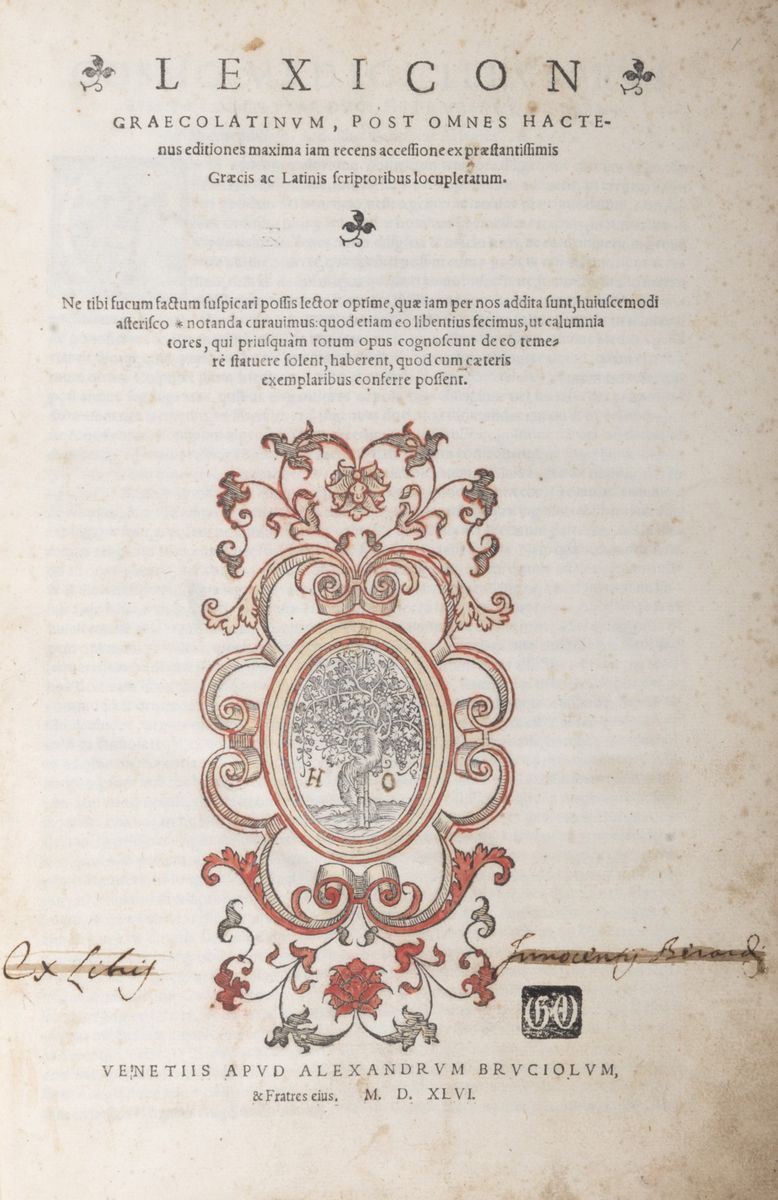 LEXICON
GRAECOLATINVM, POST OMNES HACTE-
nus editiones maxima iam recens accessione ex præstantissimis
Græcis ac Latinis scriptoribus locupletatum.
Ne tibi fucum factum suspicari possis lector optime, quæ iam per nos addita sunt, huiuscemodi
asterisco * notanda curauimus: quod etiam eo libentius fecimus, ut calumnia
tores, qui priusquàm totum opus cognoscunt de eo teme-
rè statuere solent, haberent, quod cum cæteris
exemplaribus conferre possent.
H O
Ex Libris Innocentij
VENETIIS APVD ALEXANDRVM BRVCIOLVM,
& Fratres eius. M. D. XLVI.